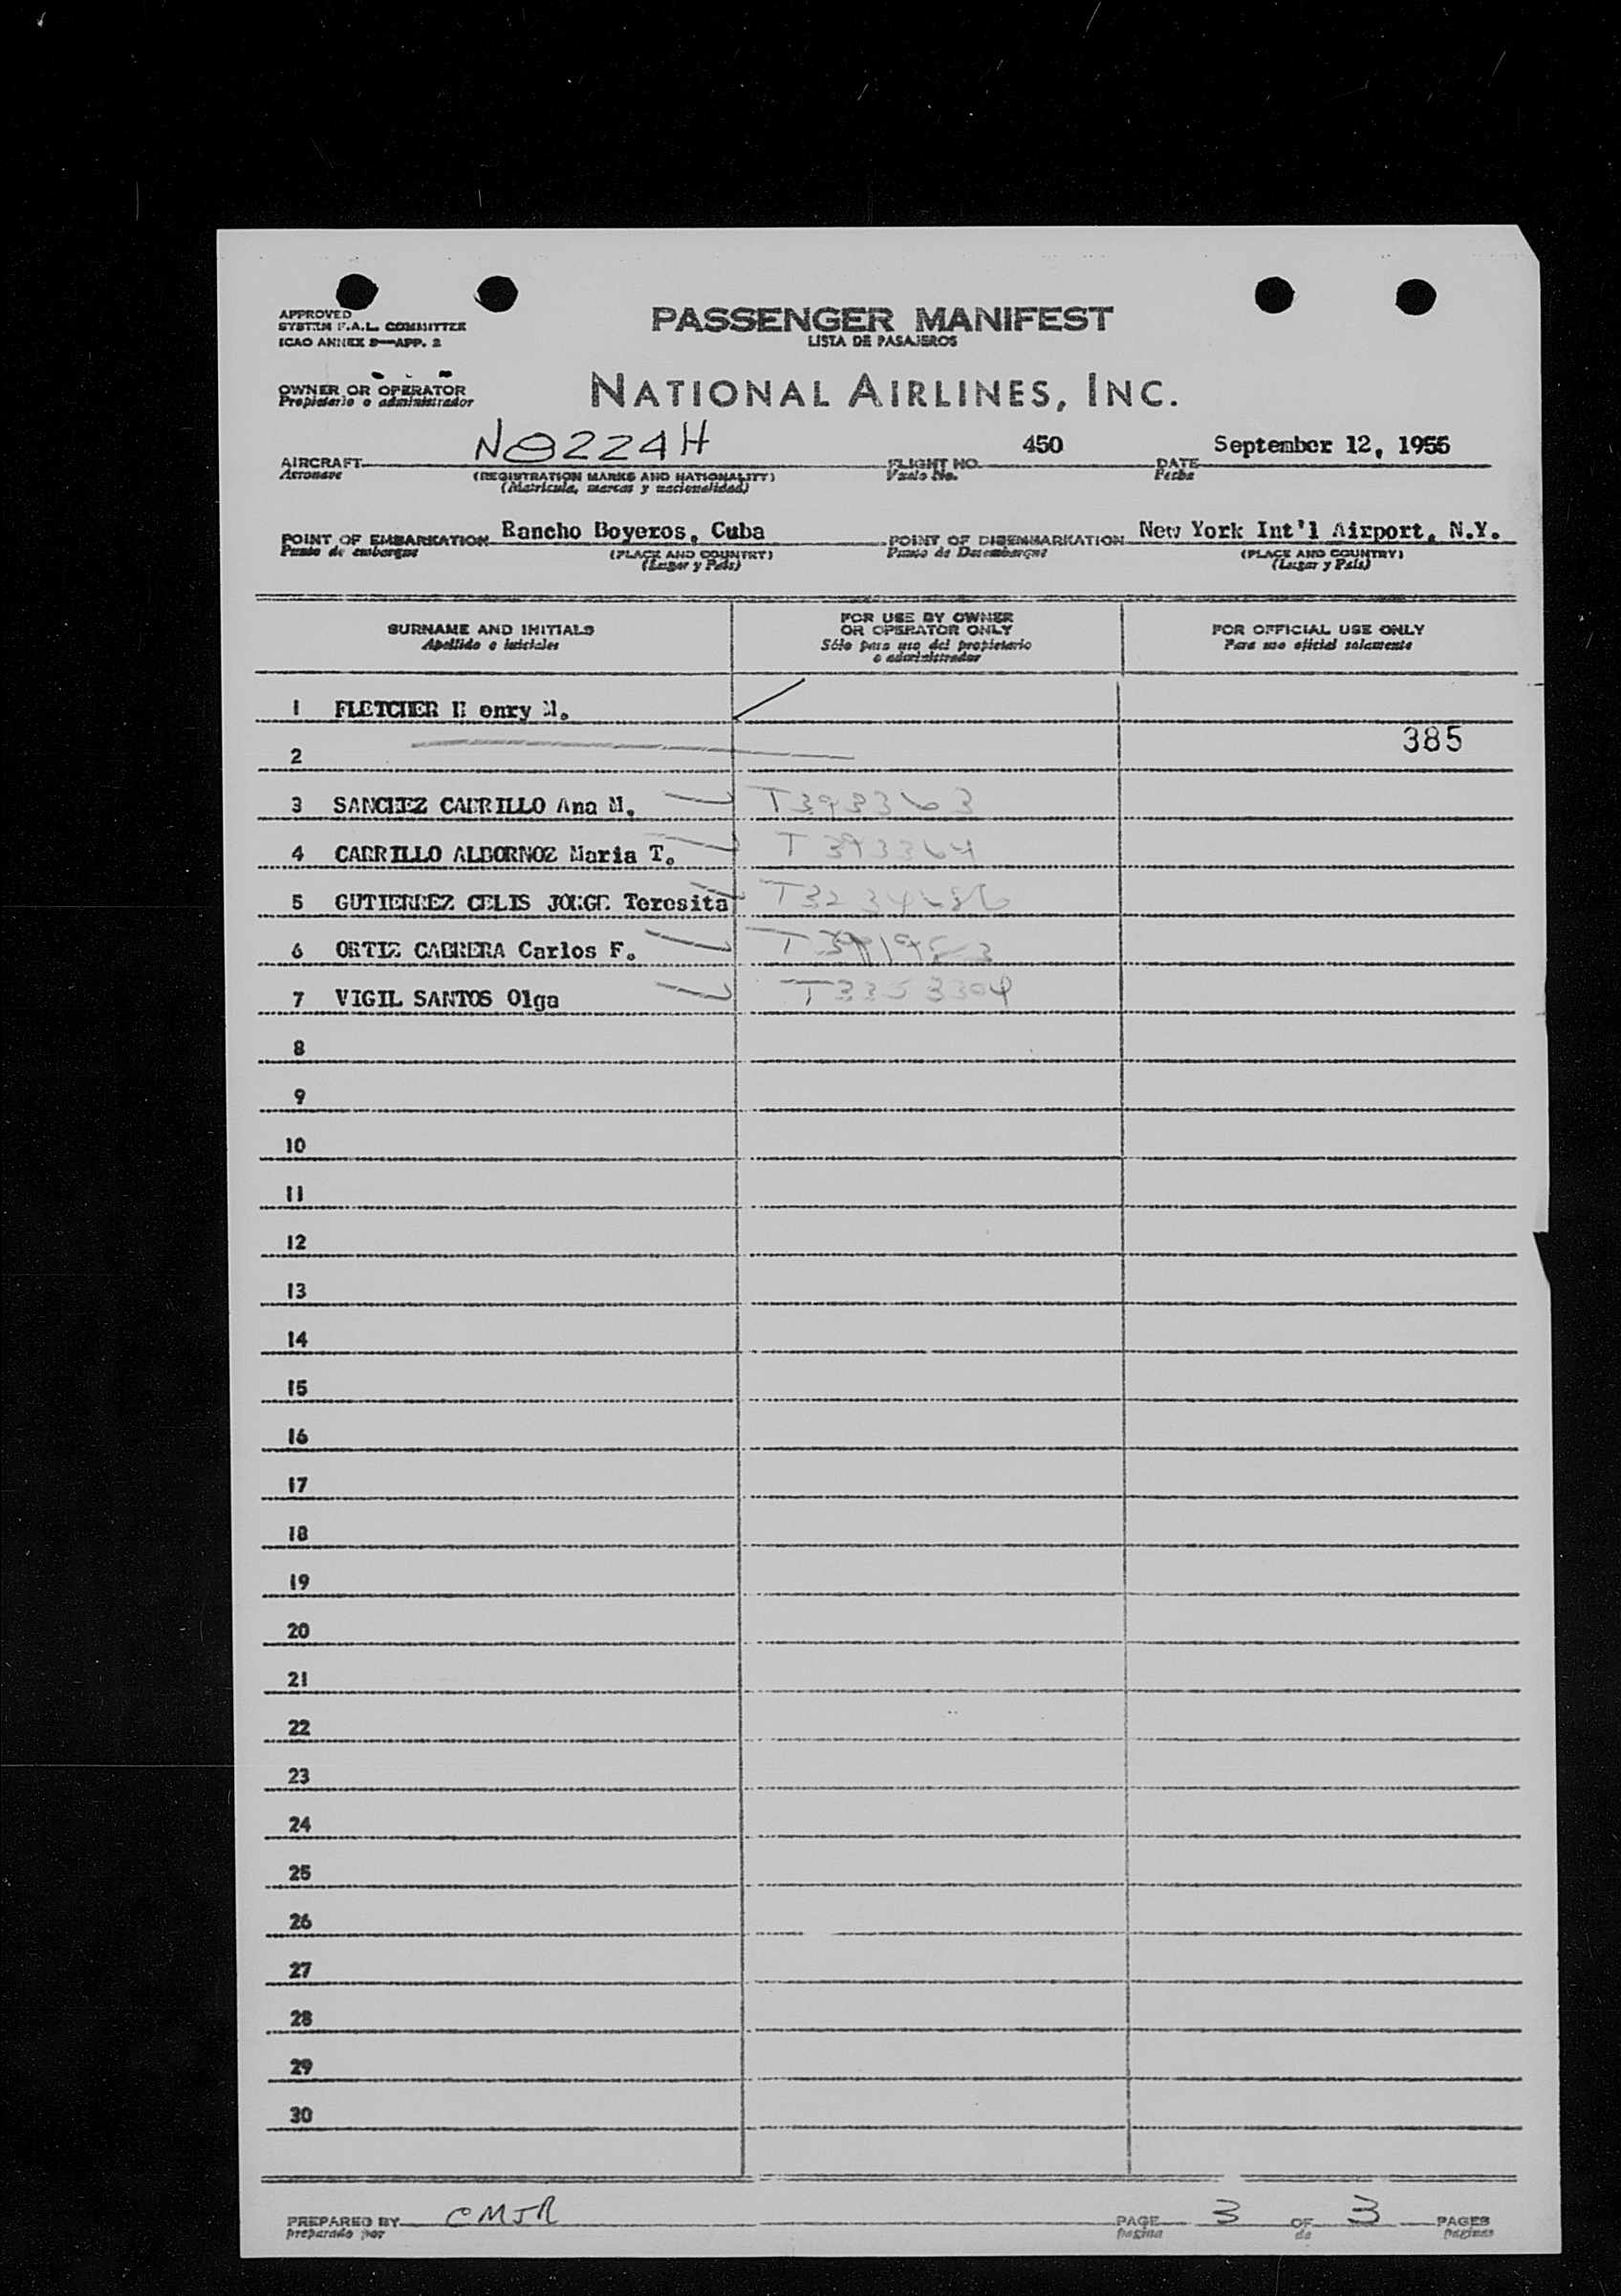 APPROVED
SYSTEM F.A.L. COMMITTEE
ICAO ANNEX 9—APP. 2
PASSENGER MANIFEST
LISTA DE PASAJEROS
OWNER OR OPERATOR
Propietario o administrador
NATIONAL AIRLINES, INC.
AIRCRAFT N8224H FLIGHT NO. 450 DATE September 12, 1955
Aeronave (REGISTRATION MARKS AND NATIONALITY) Vuelo No. Fecha
(Matrícula, marcas y nacionalidad)
POINT OF EMBARKATION Rancho Boyeros, Cuba POINT OF DISEMBARKATION New York Int'l Airport, N.Y.
Punto de embarque (PLACE AND COUNTRY) Punto de Desembarque (PLACE AND COUNTRY)
(Lugar y País) (Lugar y País)
SURNAME AND INITIALS
Apellido e iniciales
FOR USE BY OWNER
OR OPERATOR ONLY
Sólo para uso del propietario
o administrador
FOR OFFICIAL USE ONLY
Para uso oficial solamente
1 FLETCHER H enry M.
2 385
3 SANCHEZ CARRILLO Ana M. T393363
4 CARRILLO ALBORNOZ Maria T. T393364
5 GUTIERREZ CELIS JORGE Teresita
6 ORTIZ CABRERA Carlos F.
7 VIGIL SANTOS Olga T3353304
8
9
10
11
12
13
14
15
16
17
18
19
20
21
22
23
24
25
26
27
28
29
30
PREPARED BY CMJR PAGE 3 OF 3 PAGES
preparado por pagina de paginas